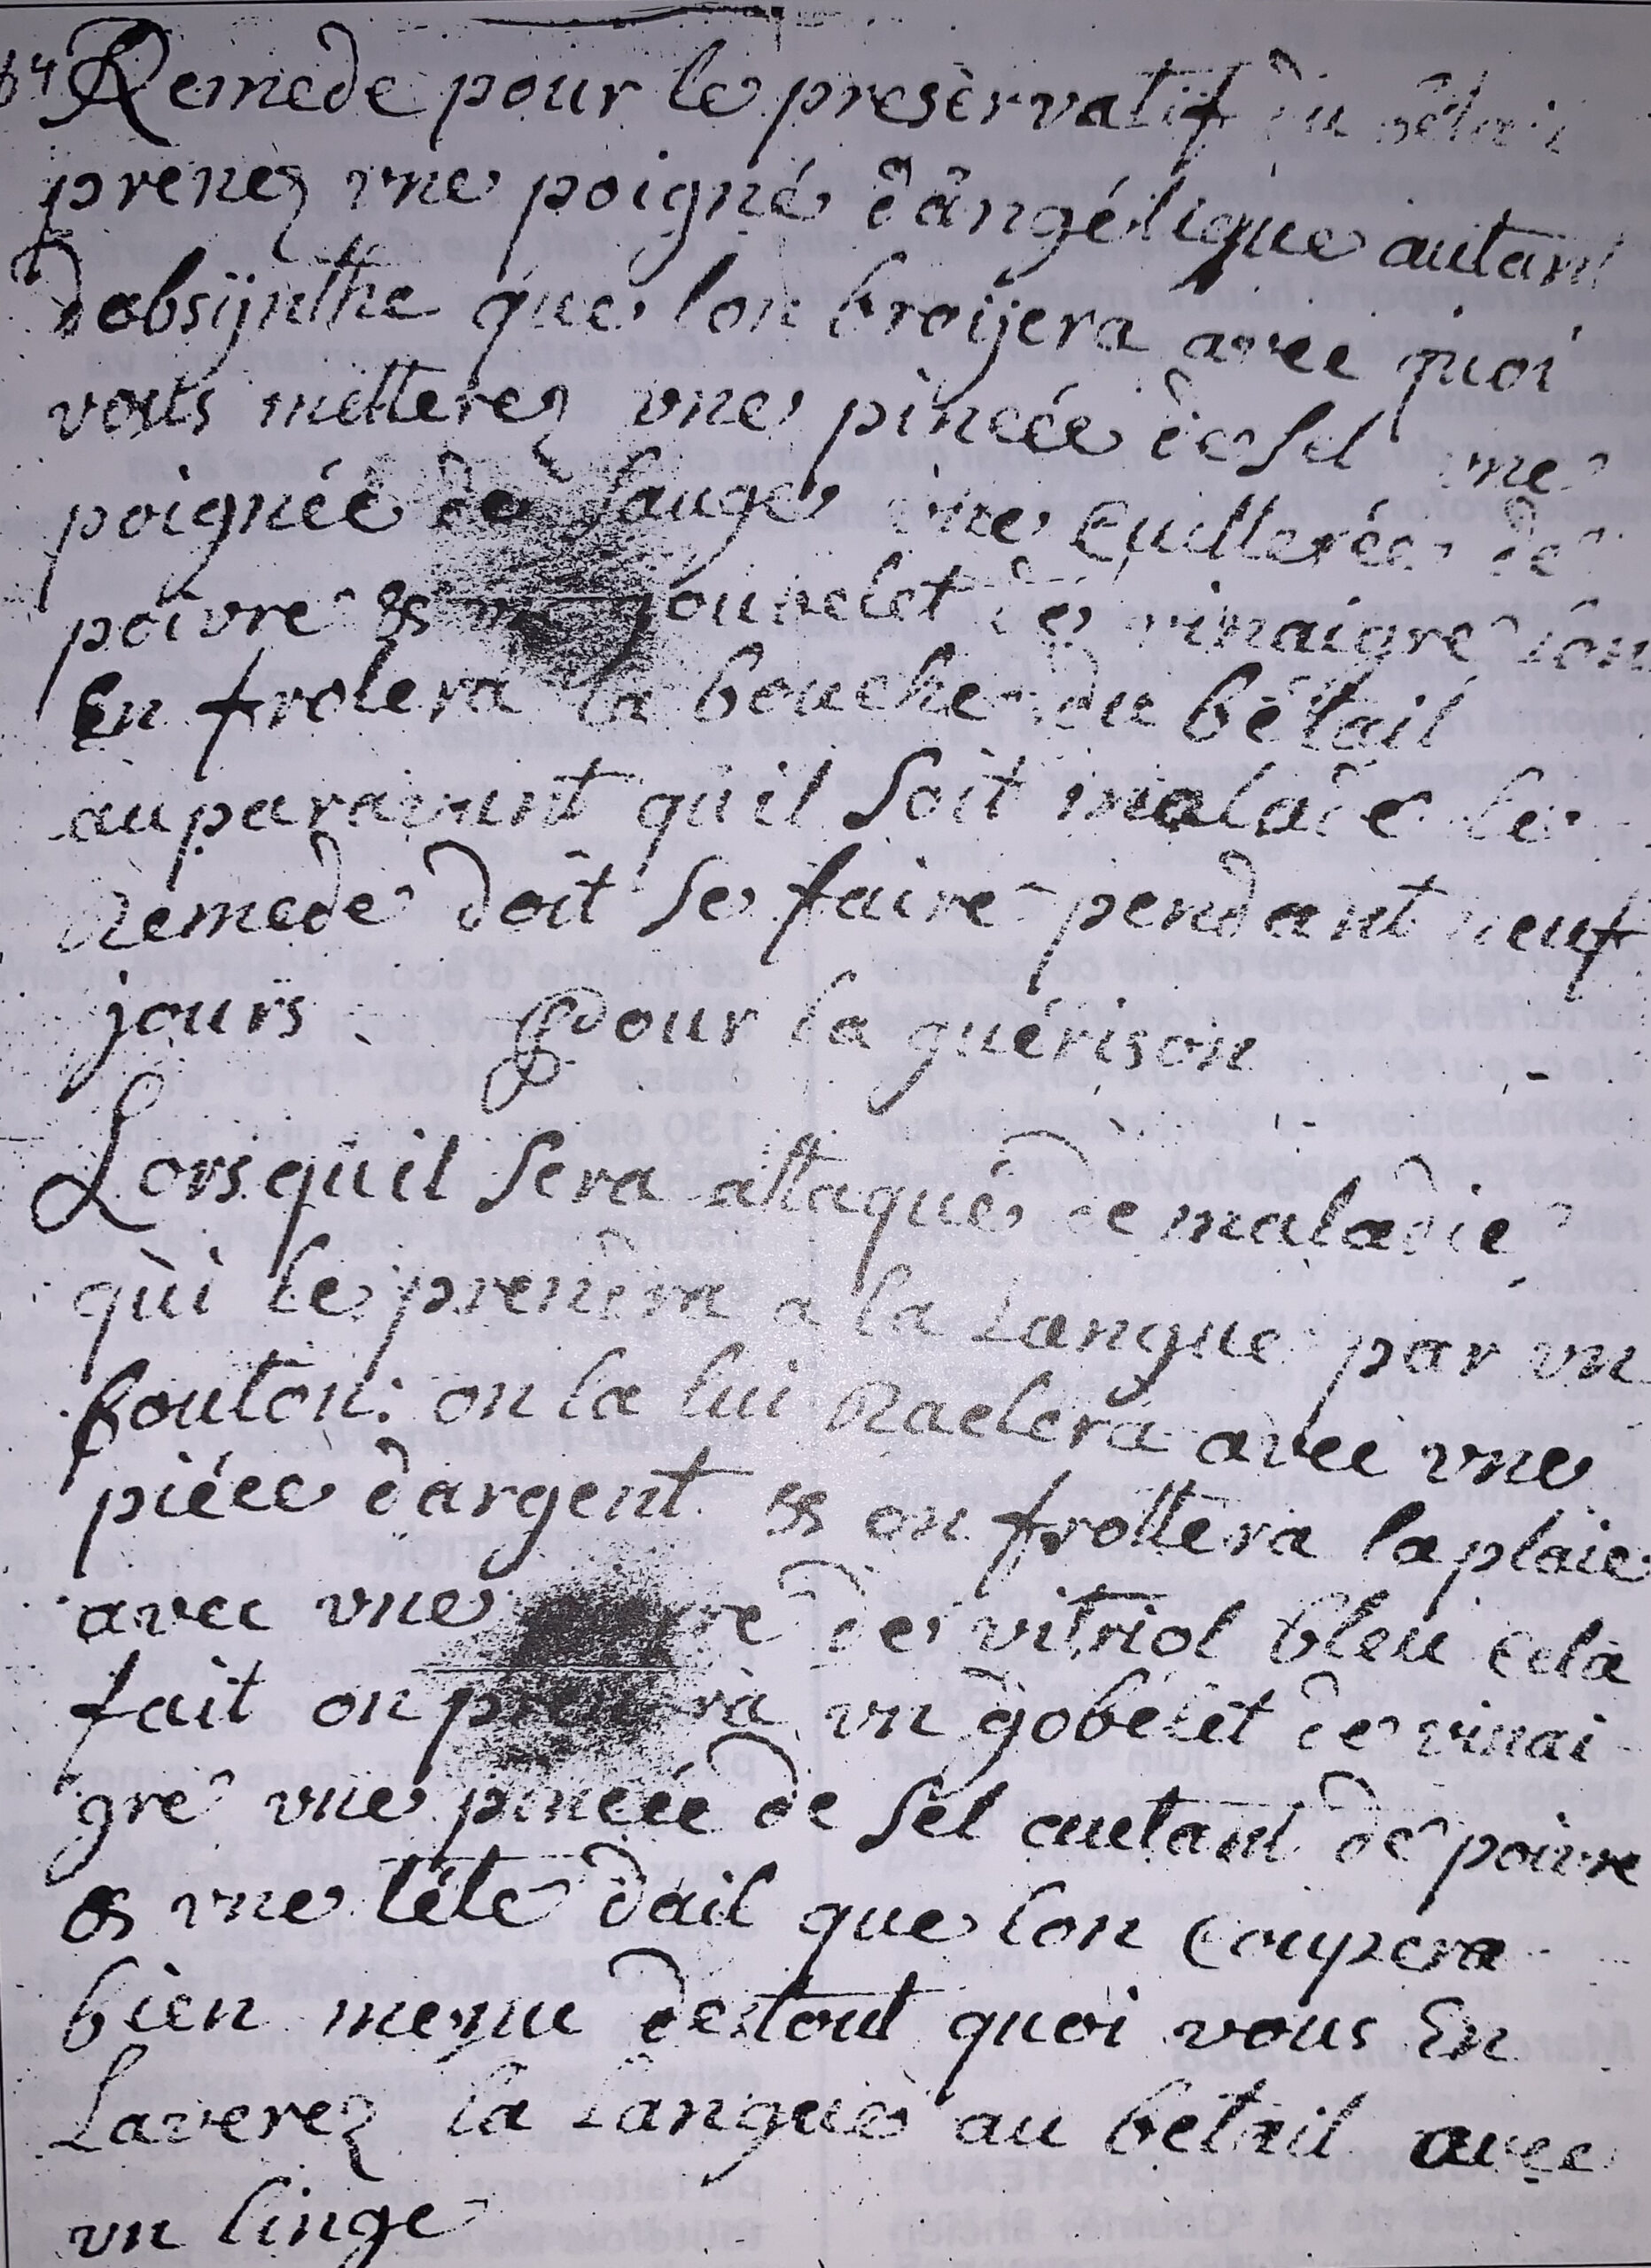 Remede pour le preservatif du bétail
prenez vne poigné dângélique autant
dabsÿnthe que lon broÿera avec quoi
vous metterez vne pincée de sel vne
poignée de sauge vne Cuillerée de
poivre & un goubelet de vinaigre lon
En frotera la bouche du bétail
auparavant quil soit malade le
Remede doit se faire pendant neuf
jours Pour la guérison
Lorsquil sera attaqué de maladie
qui le prendra a la Langue par vn
bouton: on la lui Raclera avec vne
piéce dargent & on frottera la plaie
avec vne de vitriol bleu cela
fait on prendra vn gobelet de vinai
gre vne pincée de sel autant de poivre
& vne tête dail que lon coupera
bien menu de tout quoi vous En
Laverez la Langue au betail avec
vn linge